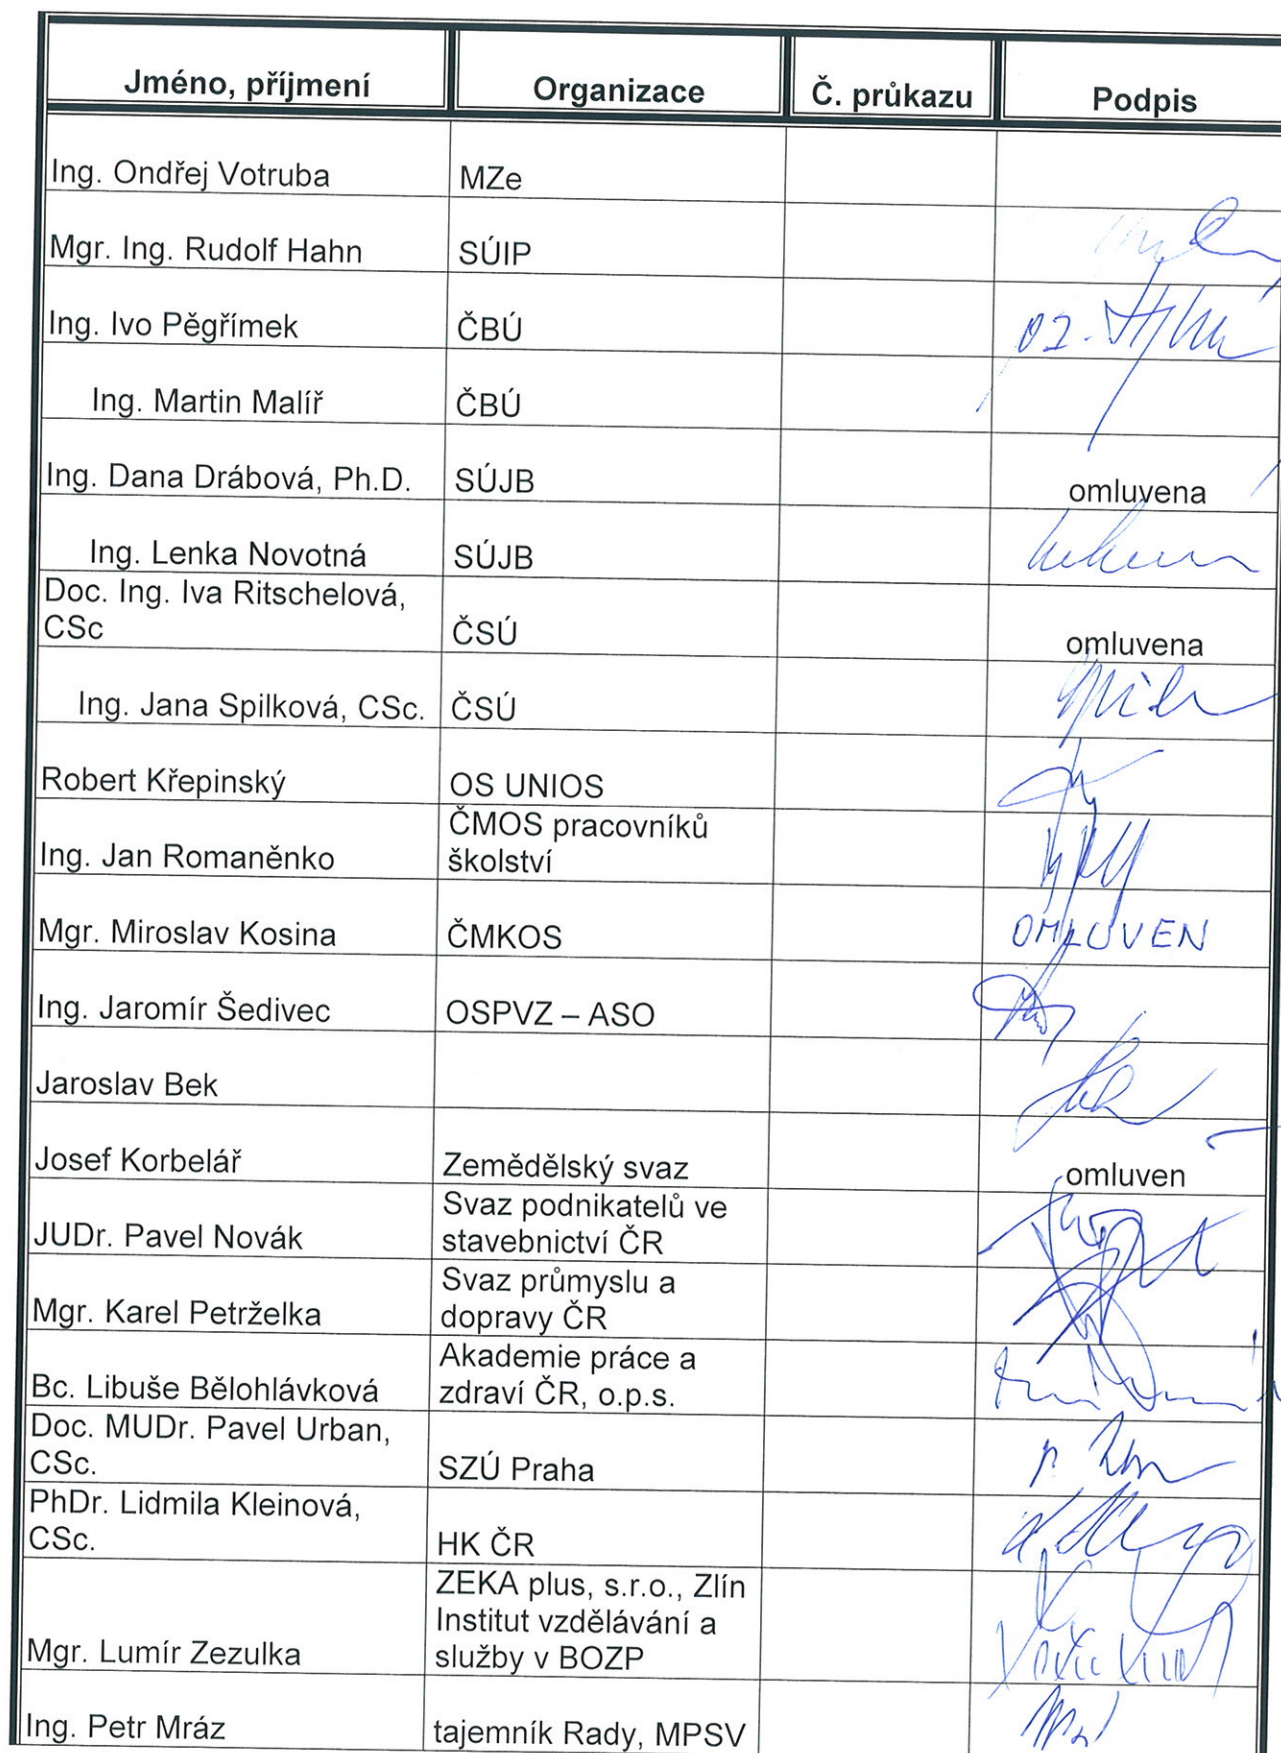 Jméno, příjmení Organizace Č. průkazu Podpis
Ing. Ondřej Votruba MZe
Mgr. Ing. Rudolf Hahn SÚIP
Ing. Ivo Pěgřímek ČBÚ
Ing. Martin Malíř ČBÚ
Ing. Dana Drábová, Ph.D. SÚJB omluvena
Ing. Lenka Novotná SÚJB
Doc. Ing. Iva Ritschelová,
CSc ČSÚ omluvena
Ing. Jana Spilková, CSc. ČSÚ
Robert Křepinský OS UNIOS
ČMOS pracovníků
Ing. Jan Romaněnko školství
Mgr. Miroslav Kosina ČMKOS OMLUVEN
Ing. Jaromír Šedivec OSPVZ – ASO
Jaroslav Bek
Josef Korbelář Zemědělský svaz omluven
Svaz podnikatelů ve
JUDr. Pavel Novák stavebnictví ČR
Svaz průmyslu a
Mgr. Karel Petrželka dopravy ČR
Akademie práce a
Bc. Libuše Bělohlávková zdraví ČR, o.p.s.
Doc. MUDr. Pavel Urban,
CSc. SZÚ Praha
PhDr. Lidmila Kleinová,
CSc. HK ČR
ZEKA plus, s.r.o., Zlín
Institut vzdělávání a
Mgr. Lumír Zezulka služby v BOZP
Ing. Petr Mráz tajemník Rady, MPSV